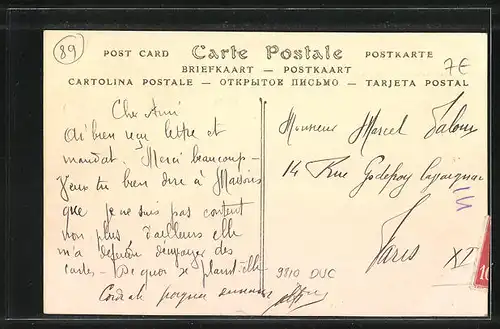 89
POST CARD Carte Postale POSTKARTE
7€
BRIEFKAART — POSTKAART
CARTOLINA POSTALE — ОТКРЫТОЕ ПИСЬМО — TARJETA POSTAL
Cher Ami
Ai bien reçu lettre et
mandat. Merci beaucoup —
Veux tu bien dire à
que je ne suis pas content
non plus d'ailleurs elle
m'a défendu d'envoyer des
cartes — De quoi se plaint-elle
Cordiale poignée
Monsieur Marcel
14 Rue Godefroy Cavaignac
Paris XI
9810 DUC
10